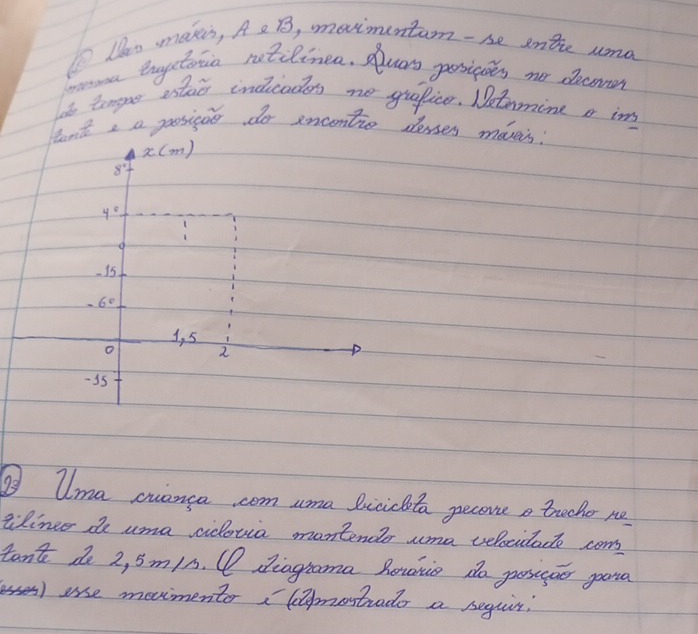 ① Dois móveis, A e B, movimentam-se entre uma
mesma trajetória retilínea. Suas posições no decorrer
do tempo estão indicados no gráfico. Determine o ins
tante e a posição do encontro desses móveis:
x(m)
8°
4°
0
-15
-6°
0 1,5 2
-15
② Uma criança com uma bicicleta percorre o trecho re
tilíneo de uma ciclovia mantendo uma velocidade cons
tante de 2,5 m/s. O diagrama horário da posição para
esse movimento é demostrado a seguir: